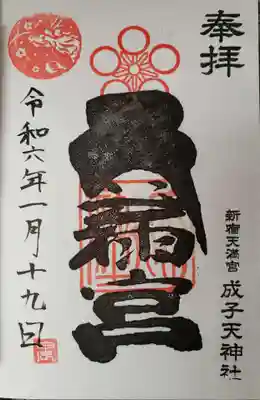 奉拝
新宿天満宮 成子天神社
天満宮
令和六年一月十九日